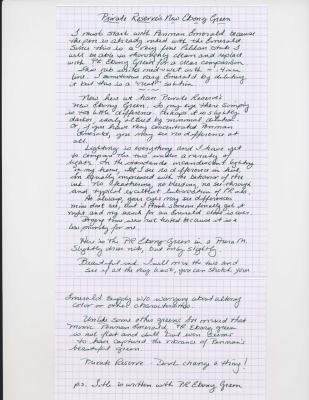 Private Reserve's New Ebony Green
I must start with Penman Emerald because
the pen is already inked with the Emerald.
Since this is a very fine Pelikan I
will be able to thoroughly clean and replace
with PR Ebony Green for a clear comparison.
This nib writes
line. I sometimes vary Emerald by diluting
it but this is a "neat" solution.
Now here we have Private Reserve's
new Ebony Green. To my eye there simply
is too little difference. Perhaps it is slightly
darker, easily altered by minimal dilution.
or if you have very concentrated Penman
Emerald, you may see no difference at
all.
Lighting is everything and I have yet
to compare the two under a variety of
lights. In the standard incandescent lighting
in my home, I see no difference in hint.
I'm equally impressed with the behavior of the
ink. No feathering, no bleeding, no see-through
and typical excellent lubrication of PR inks.
As always, your eyes may see differences
mine don't see, but I think someone finally got it
right and my search for an Emerald clone is over.
Drying time was not tested because it is a
low priority for me.
Here is the PR Ebony Green in a
Slightly drier nib, but only slightly.
Beautiful ink. I will mix the two and
see if at the very least, you can stretch your
Emerald supply w/o worrying about altering
color or other characteristics.
Unlike some other greens I've mixed that
mimic Penman Emerald, PR Ebony green
is not flat and dull but even seems
to have captured the vibrance of Penman's
beautiful green.
Private Reserve - Don't change a thing!
p.s. Title is written with PR Ebony Green